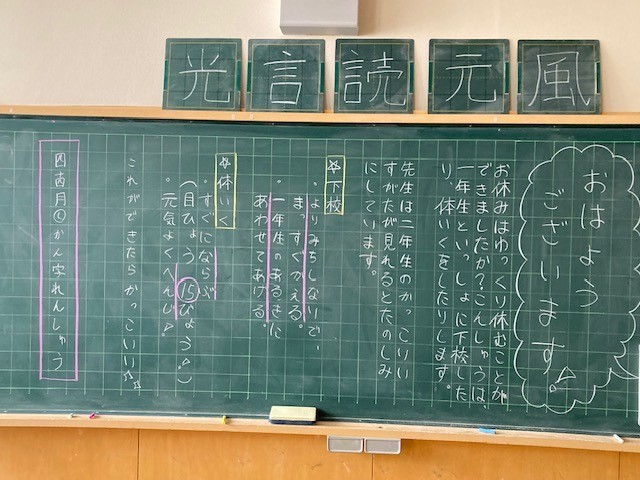 風
元
読
言
光
おはよう
ございます。
お休みはゆっくり休むことが
できましたか?こんしゅうは、
一年生といっしょに下校した
り、体いくをしたりします。
先生は二年生のかっこいい
すがたが見れるとたのしみ
にしています。
下校
・よりみちしないで、
まっすぐかえる。
・一年生のあるきに
あわせてあげる。
体いく
・すぐにならぶ
(目ひょう⑮びょう。)
・元気よくへんじ。
これができたらかっこいい☆☆
かん字れんしゅう